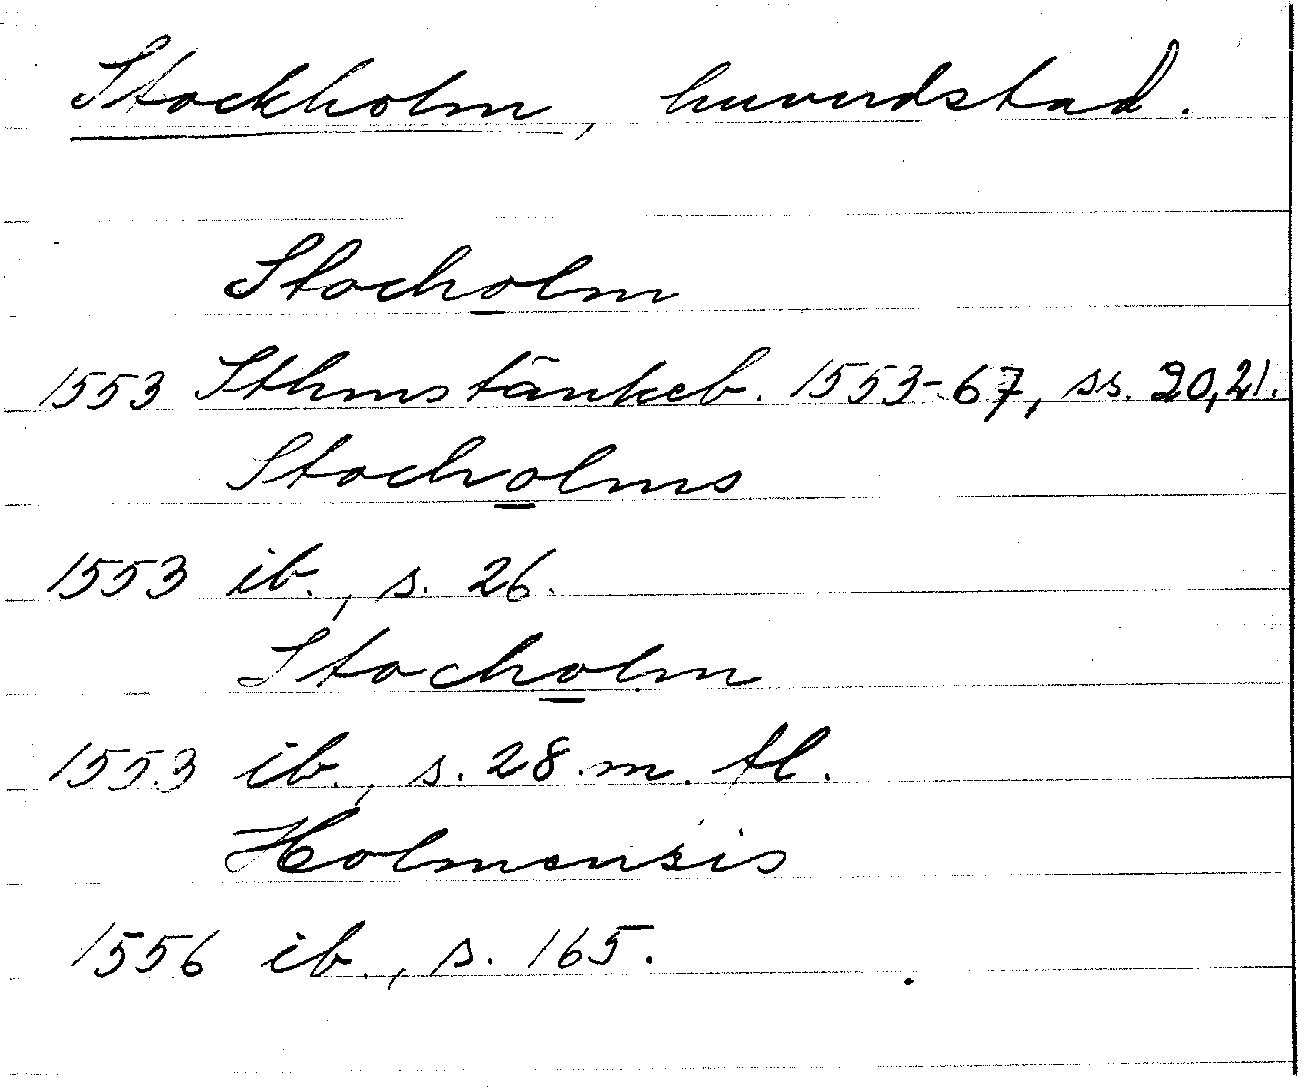 Stockholm, huvudstad.
Stocholm
1553 Sthms tänkeb. 1553-67, ss. 20,21.
Stocholms
1553 ib., s. 26.
Stocholm
1553 ib., s. 28 m. fl.
Holmensis
1556 ib., s. 165.